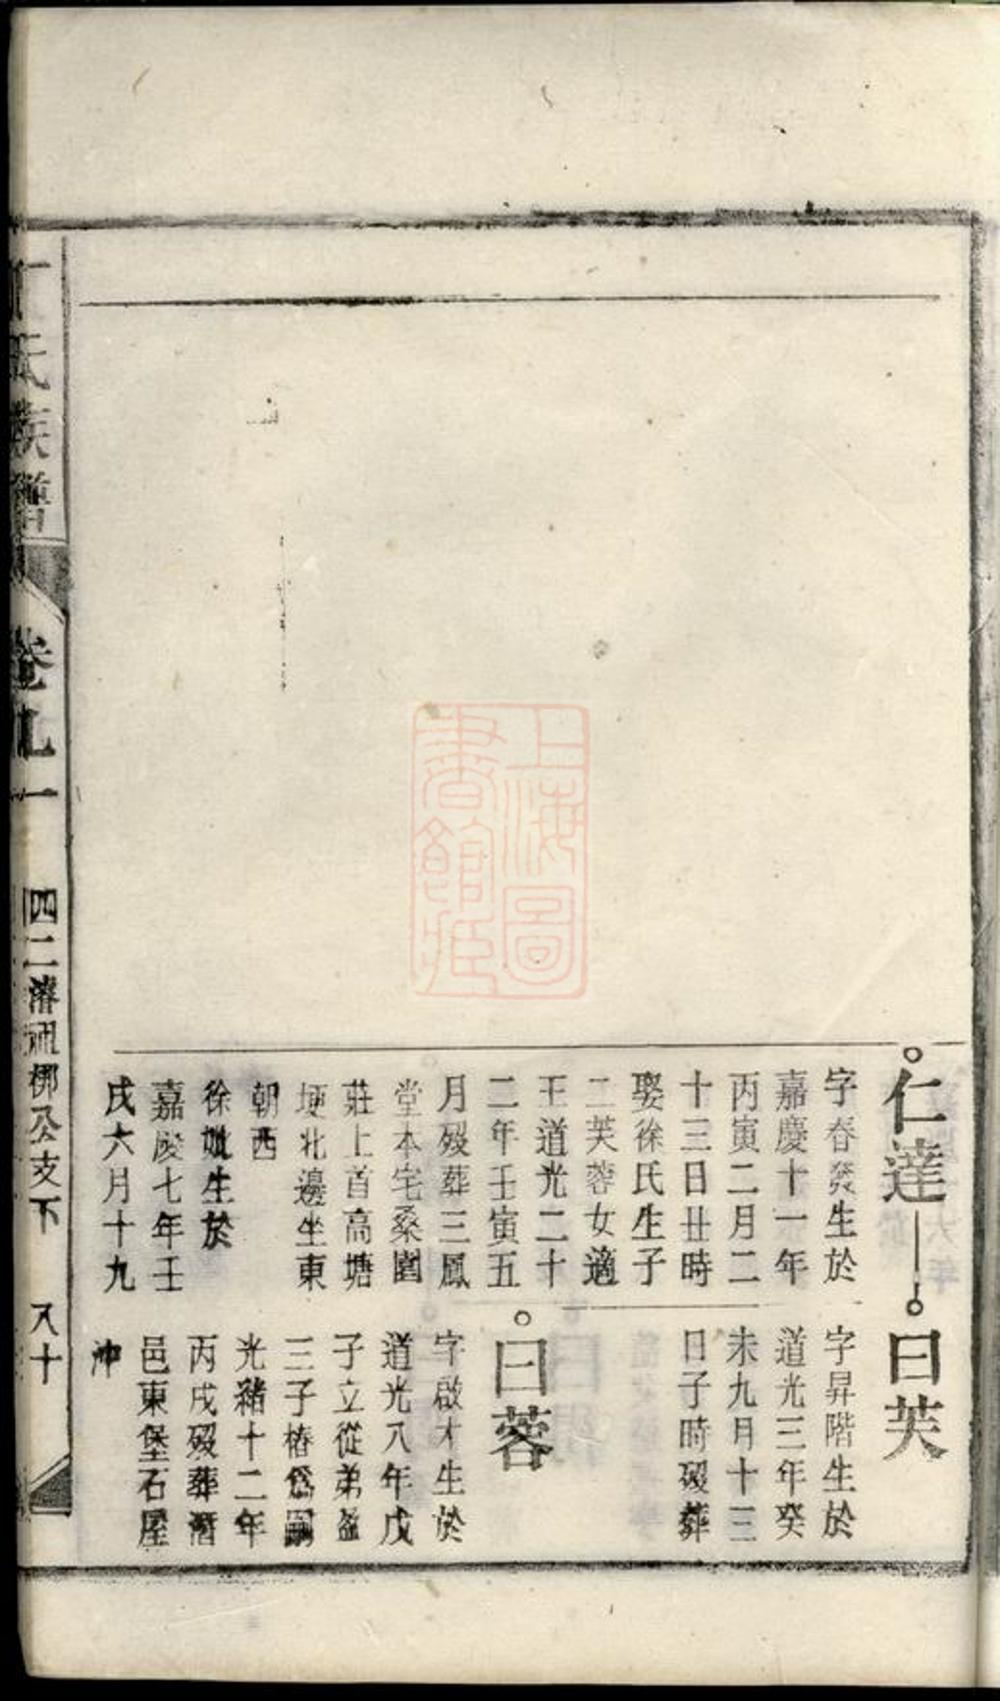 仁達
字春煲生於
嘉慶十一年
丙寅二月二
十三日丑時
娶徐氏生子
二芙蓉女適
王道光二十
二年壬寅五
月歿葬三鳳
堂本宅桑園
莊上首高塘
埂北邊坐東
朝西
徐妣生於
嘉慶七年壬
戌六月十九
曰芙
字昇階生於
道光三年癸
未九月十三
日子時歿葬
曰蓉
字啟才生於
道光八年戊
子立從弟盈
三子椿爲嗣
光緒十二年
丙戌歿葬潛
邑東堡石屋
冲
氏族譜
卷九一
四二濬通梛公支下
八十
上海圖
書館藏